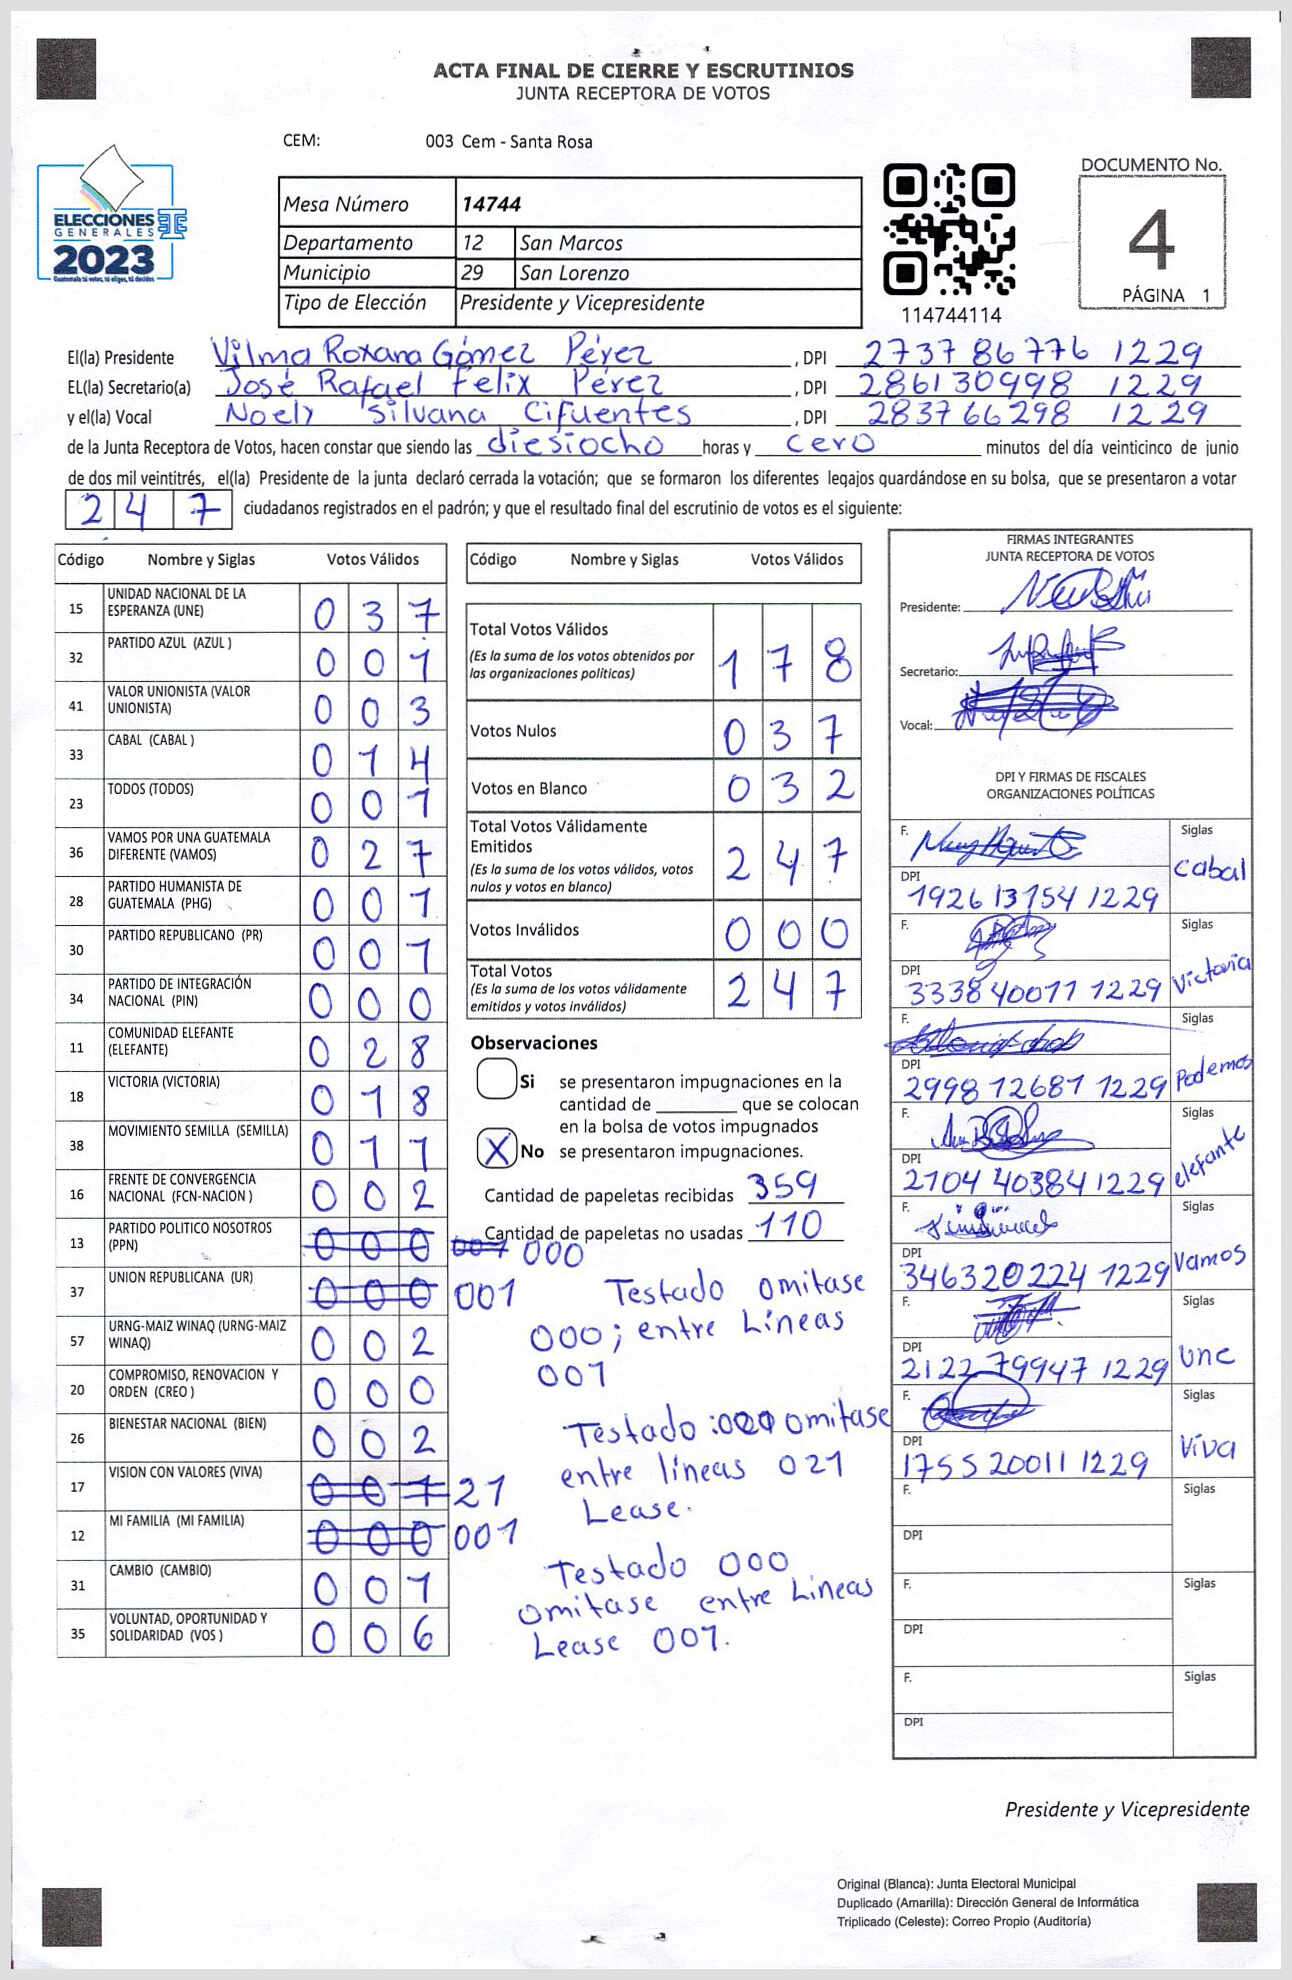 ACTA FINAL DE CIERRE Y ESCRUTINIOS
JUNTA RECEPTORA DE VOTOS
CEM: 003 Cem - Santa Rosa
ELECCIONES
GENERALES
2023
Guatemala tú votas, tú eliges, tú decides
Mesa Número 14744
Departamento 12 San Marcos
Municipio 29 San Lorenzo
Tipo de Elección Presidente y Vicepresidente
114744114
DOCUMENTO No.
4
PÁGINA 1
El(la) Presidente Vilma Roxana Gómez Pérez , DPI 2737 86776 1229
EL(la) Secretario(a) José Rafael Felix Pérez , DPI 2861 30998 1229
y el(la) Vocal Noely Silvana Cifuentes , DPI 2837 66298 1229
de la Junta Receptora de Votos, hacen constar que siendo las diesiocho horas y cero minutos del día veinticinco de junio
de dos mil veintitrés, el(la) Presidente de la junta declaró cerrada la votación; que se formaron los diferentes legajos guardándose en su bolsa, que se presentaron a votar
2 4 7 ciudadanos registrados en el padrón; y que el resultado final del escrutinio de votos es el siguiente:
Código Nombre y Siglas Votos Válidos
15 UNIDAD NACIONAL DE LA ESPERANZA (UNE) 0 3 7
32 PARTIDO AZUL (AZUL ) 0 0 1
41 VALOR UNIONISTA (VALOR UNIONISTA) 0 0 3
33 CABAL (CABAL ) 0 1 4
23 TODOS (TODOS) 0 0 1
36 VAMOS POR UNA GUATEMALA DIFERENTE (VAMOS) 0 2 7
28 PARTIDO HUMANISTA DE GUATEMALA (PHG) 0 0 1
30 PARTIDO REPUBLICANO (PR) 0 0 1
34 PARTIDO DE INTEGRACIÓN NACIONAL (PIN) 0 0 0
11 COMUNIDAD ELEFANTE (ELEFANTE) 0 2 8
18 VICTORIA (VICTORIA) 0 1 8
38 MOVIMIENTO SEMILLA (SEMILLA) 0 1 1
16 FRENTE DE CONVERGENCIA NACIONAL (FCN-NACION ) 0 0 2
13 PARTIDO POLITICO NOSOTROS (PPN) 0 0 0 001 000
37 UNION REPUBLICANA (UR) 0 0 0 001
57 URNG-MAIZ WINAQ (URNG-MAIZ WINAQ) 0 0 2
20 COMPROMISO, RENOVACION Y ORDEN (CREO ) 0 0 0
26 BIENESTAR NACIONAL (BIEN) 0 0 2
17 VISION CON VALORES (VIVA) 0 0 1 21
12 MI FAMILIA (MI FAMILIA) 0 0 0 001
31 CAMBIO (CAMBIO) 0 0 1
35 VOLUNTAD, OPORTUNIDAD Y SOLIDARIDAD (VOS ) 0 0 6
Código Nombre y Siglas Votos Válidos
Total Votos Válidos 1 7 8
(Es la suma de los votos obtenidos por
las organizaciones políticas)
Votos Nulos 0 3 7
Votos en Blanco 0 3 2
Total Votos Válidamente
Emitidos 2 4 7
(Es la suma de los votos válidos, votos
nulos y votos en blanco)
Votos Inválidos 0 0 0
Total Votos 2 4 7
(Es la suma de los votos válidamente
emitidos y votos inválidos)
Observaciones
Si se presentaron impugnaciones en la
cantidad de ________ que se colocan
en la bolsa de votos impugnados
X No se presentaron impugnaciones.
Cantidad de papeletas recibidas 359
Cantidad de papeletas no usadas 110
Testado omitase
000; entre Líneas
001
Testado: 000 omitase
entre líneas 021
Lease.
Testado 000
omitase entre Líneas
Lease 001.
FIRMAS INTEGRANTES
JUNTA RECEPTORA DE VOTOS
Presidente:
Secretario:
Vocal:
DPI Y FIRMAS DE FISCALES
ORGANIZACIONES POLÍTICAS
F. Siglas
Cabal
DPI
1926 13154 1229
F. Siglas
Victoria
DPI
3338 40011 1229
F. Siglas
Podemos
DPI
2998 12681 1229
F. Siglas
elefante
DPI
2104 40384 1229
F. Siglas
Vamos
DPI
3463 20224 1229
F. Siglas
une
DPI
2122 79947 1229
F. Siglas
Viva
DPI
1755 20011 1229
F. Siglas
DPI
F. Siglas
DPI
F. Siglas
DPI
Presidente y Vicepresidente
Original (Blanca): Junta Electoral Municipal
Duplicado (Amarilla): Dirección General de Informática
Triplicado (Celeste): Correo Propio (Auditoría)